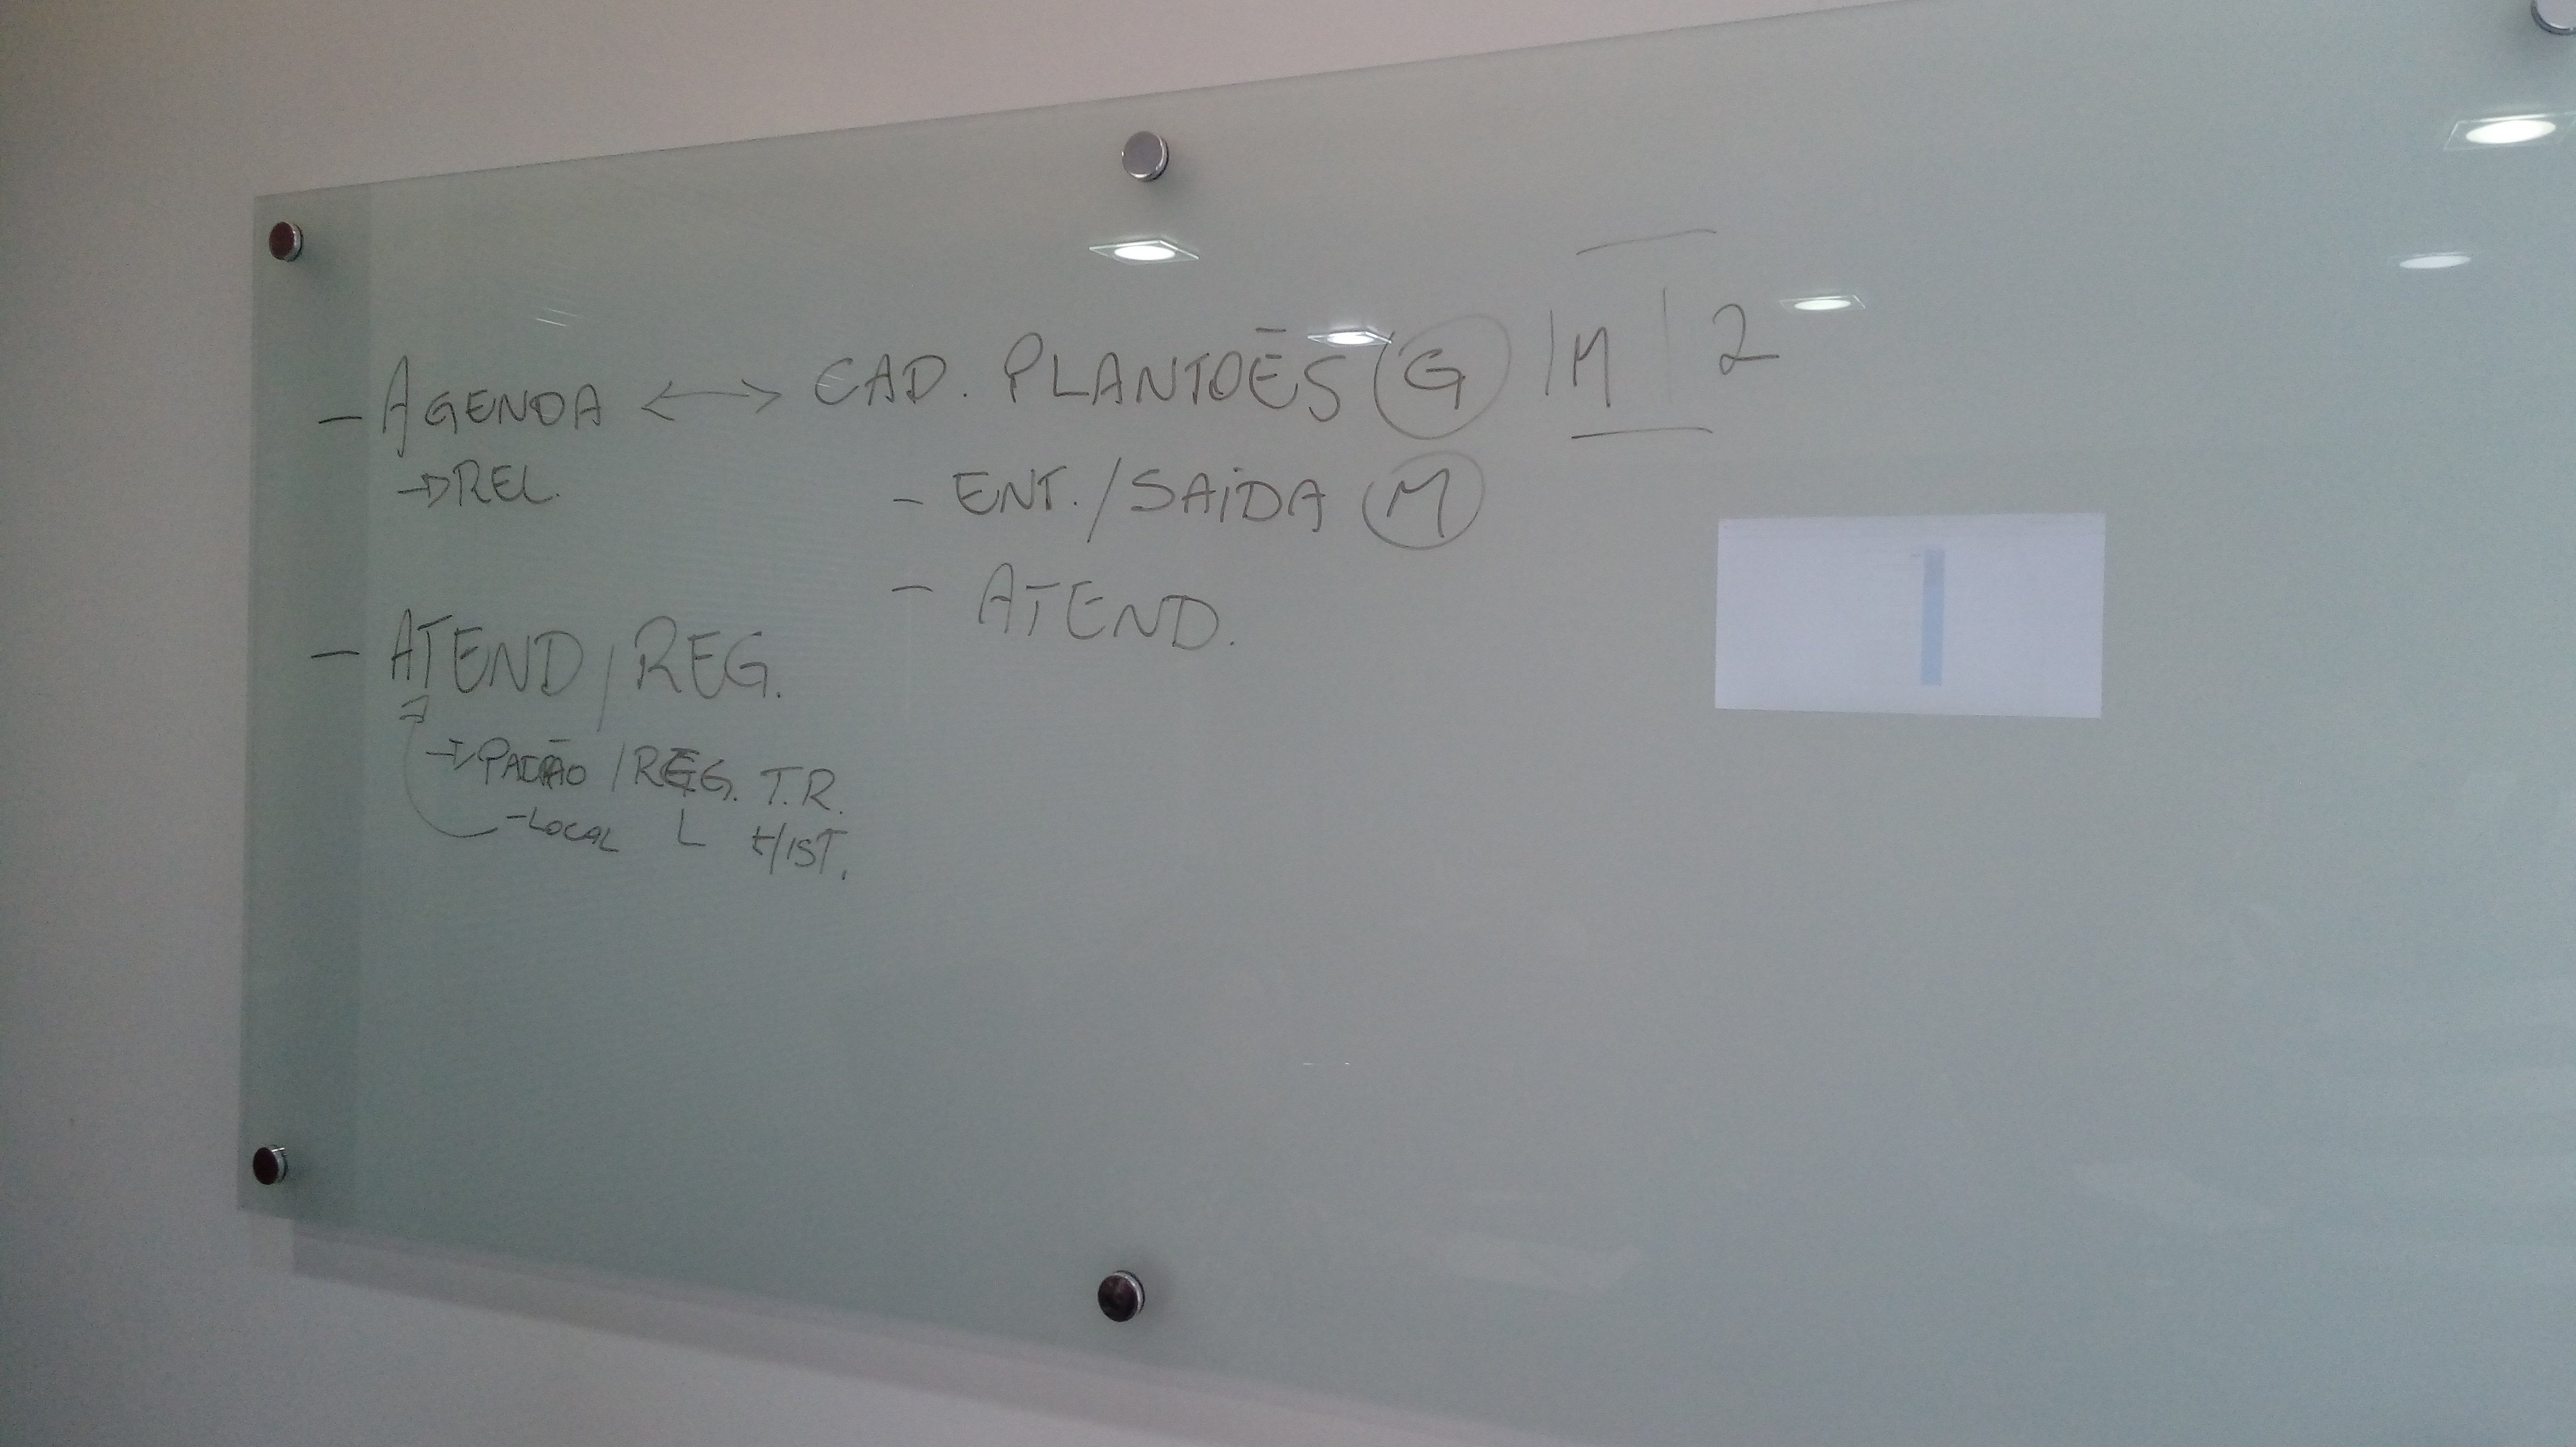 - AGENDA <-> CAD. PLANTOẼS (G) | M | 2
→ REL.
- ENT./SAIDA (M)
- ATEND.
- ATEND/REG.
→ / REG. T.R.
- LOCAL L